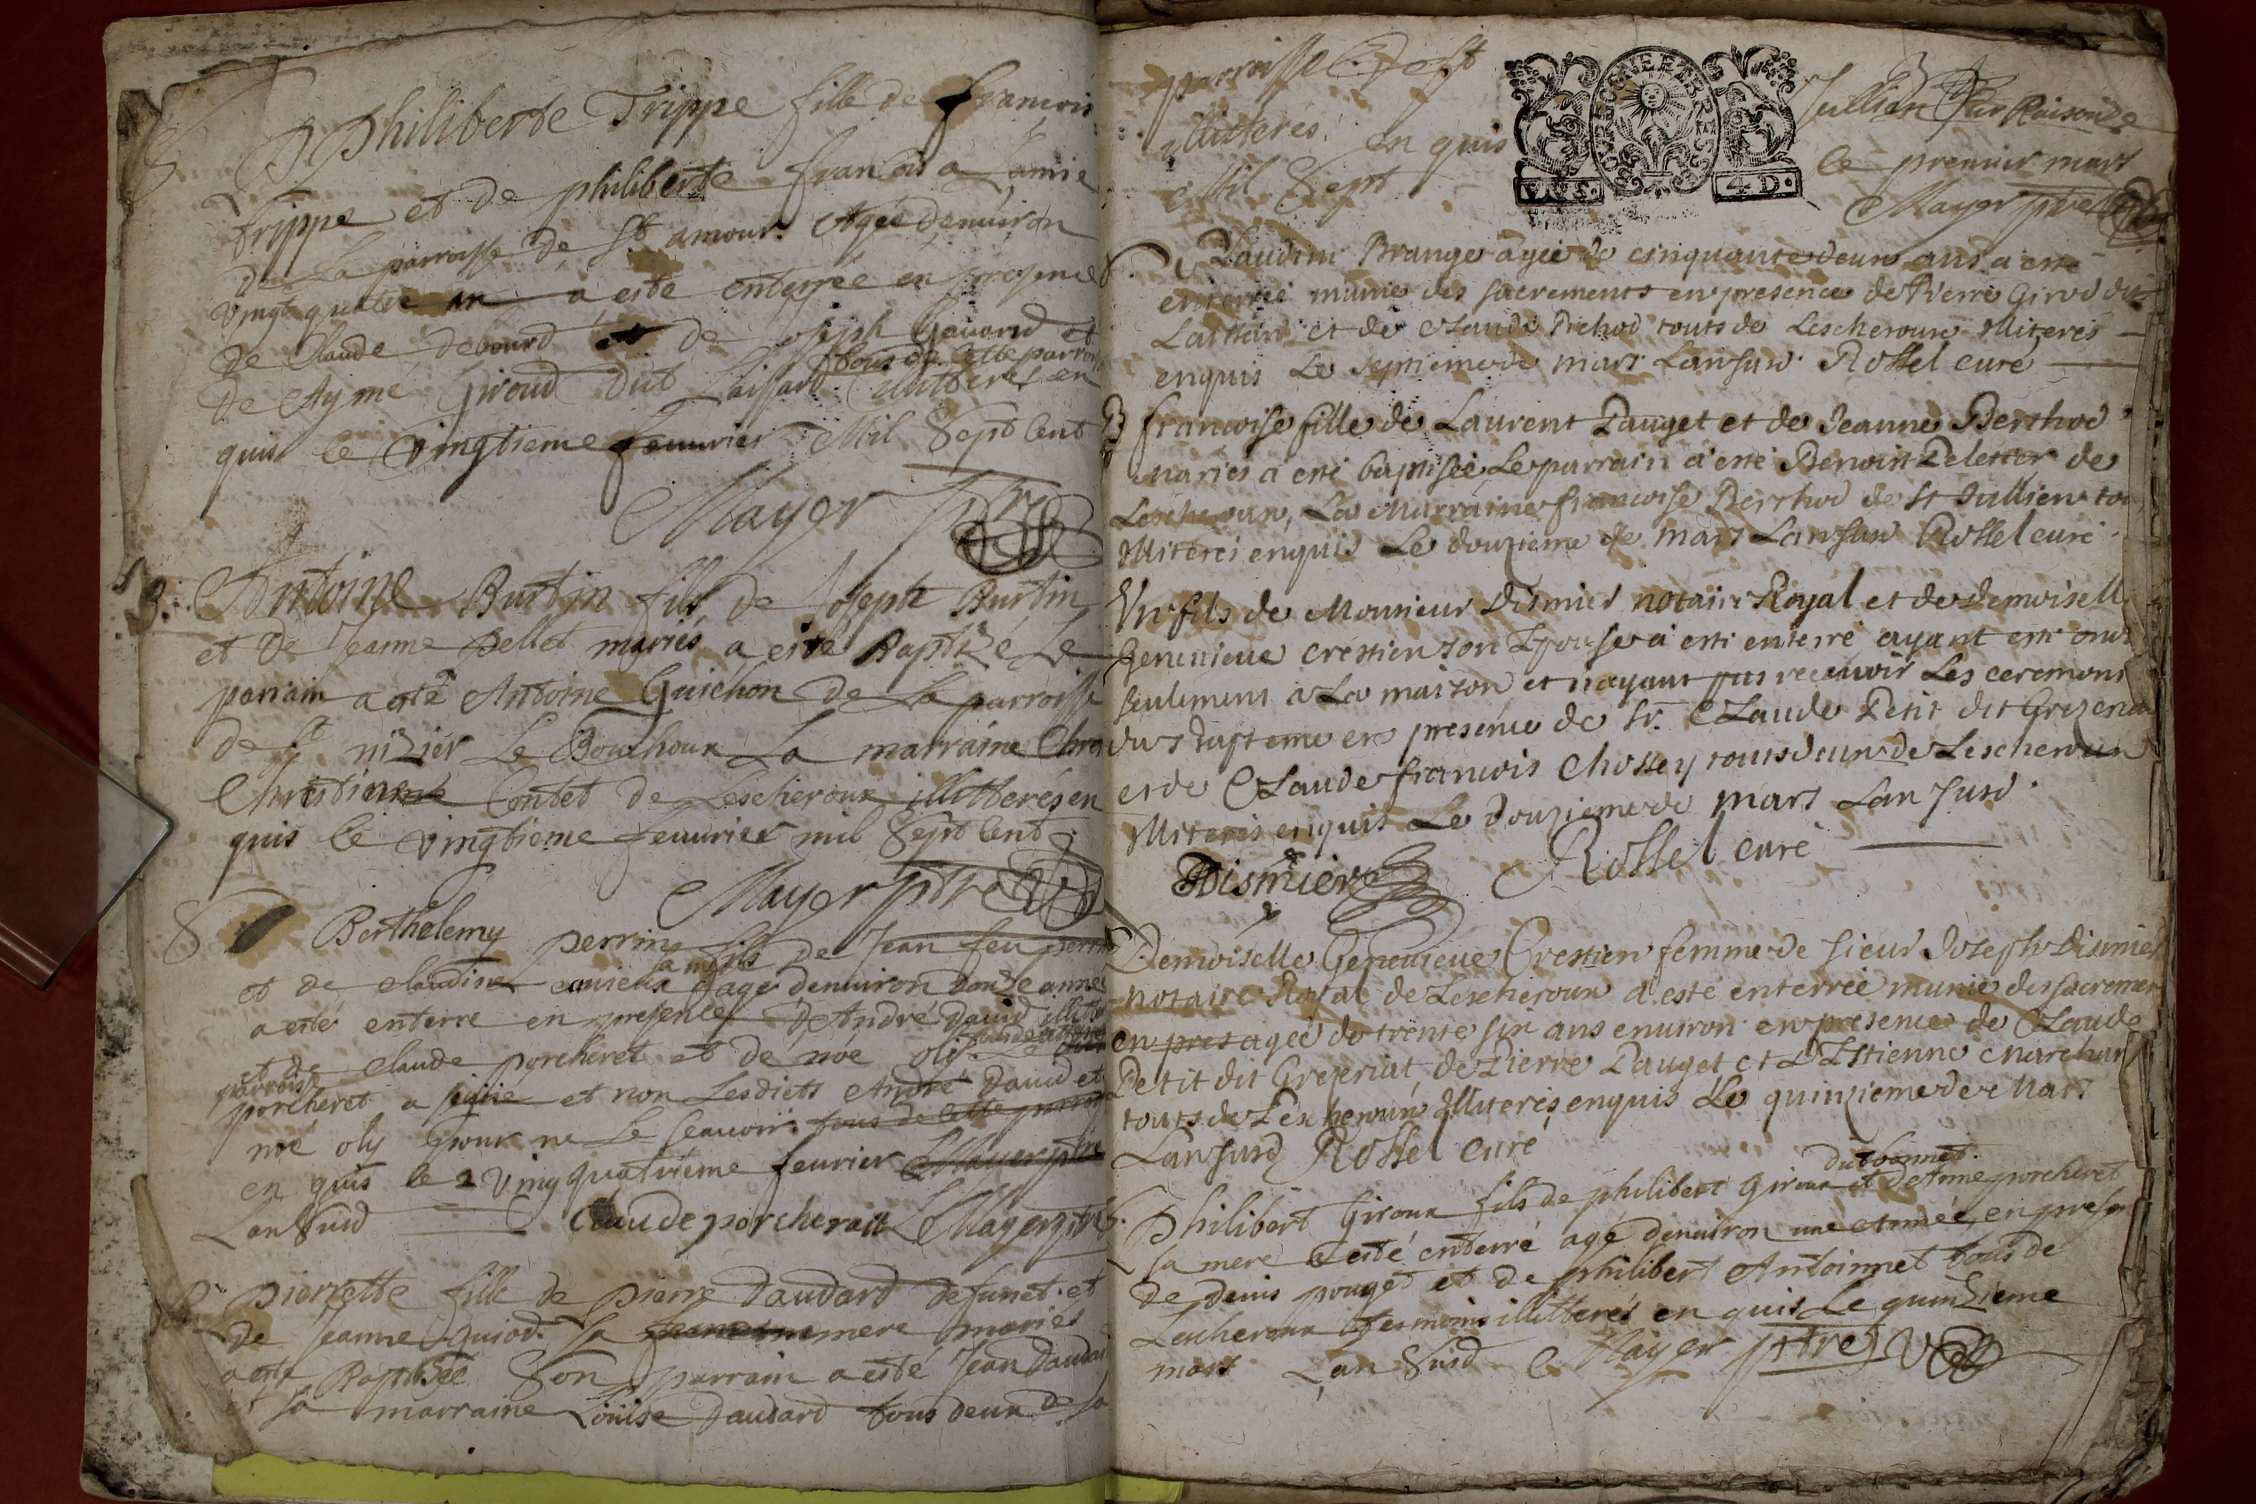 S
Philiberte Trippe fille de francois
trippe et de philiberte francois a
de La parroisse de St amour Agée denuiron
vingt quatre an a este enterrée en presence
De Claude debourd et de Joseph Gauard et
tous de cette parroi
de Aymé Giroud dit Laissard illitterés en
quis le vingtieme feuurier Mil Sept Cent
Mayer ptre
B. Antoine Burtin fils de Joseph Burtin
et de Jeanne Pellet mariés a esté Baptizé Le
parrain a esté Antoine Guichon de La parroisse
de St nizier Le Bouchoux La marraine Chre
Christienne Contet de Lescheroux illitterés en
quis le vingtieme feuurier mil Sept Cent
Mayer ptre
S Berthelemy perrin fils de Jean feu perrin
et de Claudine agé denuiron douze années
a esté enterre en presence d'André dauid
et de Claude porcheret et de noé oly Le
parroisse
porcheret a signé et non Lesdicts André Dauid et
noé oly pour ne Le scauoir tous de cette parroi
en quis le 2 vingquatrieme feurier Mayer ptre
Lan Susd Claude porcherait Mayer ptre
B pierrette fille de pierre Daudard defunct et
de Jeanne Guiod sa femme mere mariés
a esté Baptisée Son parrain a esté Jean daudar
et sa marraine Louise Daudard tous deux de La
parroisse de st Jullien Sur Raisouze
illitterés en quis le premier mars
Mil Sept Mayer ptre
GEN. 4 D.
S. Claudine Brange agée de cinquante deux ans a esté
enterrée munie des sacrements en presence de Pierre Girod dit
Laissard et de Claude Pichod touts de Lescheroux illiterés
enquis Le septieme de mars Lan susd Rossel curé
B francoise fille de Laurent Pauget et de Jeanne Berthod
mariés a esté baptisée Le parrain a esté Benoist Peletier de
Lescheroux, La marraine francoise Berthod de St Jullien to
illiterés enquis Le douzieme de mars Lan susd Rossel curé
Un fils de Monsieur Dismier notaire Royal et de Demoiselle
Geneuieue crestien son Epouse a esté enterré ayant esté ond
seulement a La maison et n'ayant pas recevoir Les ceremoni
du s bapteme en presence de Sr. Claude Petit dit Grezeria
et de Claude francois Chossey touts deux de Lescheroux
illiterés enquis Le douzieme de mars Lan susd.
Dismier Rossel curé
Demoiselle Geneuieue Crestien femme de sieur Joseph Dismier
notaire Royal de Lescheroux a esté enterrée munie des sacremen
en pres agée de trente six ans enuiron en presence de Claude
Petit dit Grezeriat de Pierre Pauget et d'Estienne Marchan
touts de Lescheroux illiterés enquis Le quinzieme de Mars
Lan susd Rossel curé
dit bonnet.
S. Philibert Giroux fils de philibert Giroux et dAnne porcheret
sa mere a esté enterré agé denuiron une Année, en presen
de denis pouget et de philibert Antoinnet tous de
Lescheroux tesmoins illitterés en quis Le quinzieme
mars Lan Susd Mayer ptre